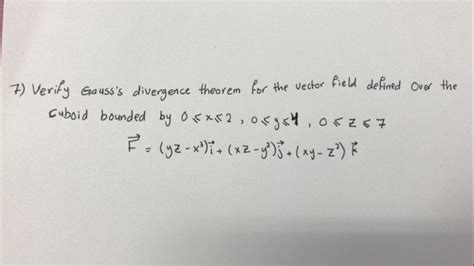 7) Verify Gauss's divergence theorem for the vector field defined over the
cuboid bounded by 0 ≤ x ≤ 2 , 0 ≤ y ≤ 4 , 0 ≤ z ≤ 7
F⃗ = (yz - x²)i⃗ + (xz - y²)j⃗ + (xy - z²) k⃗